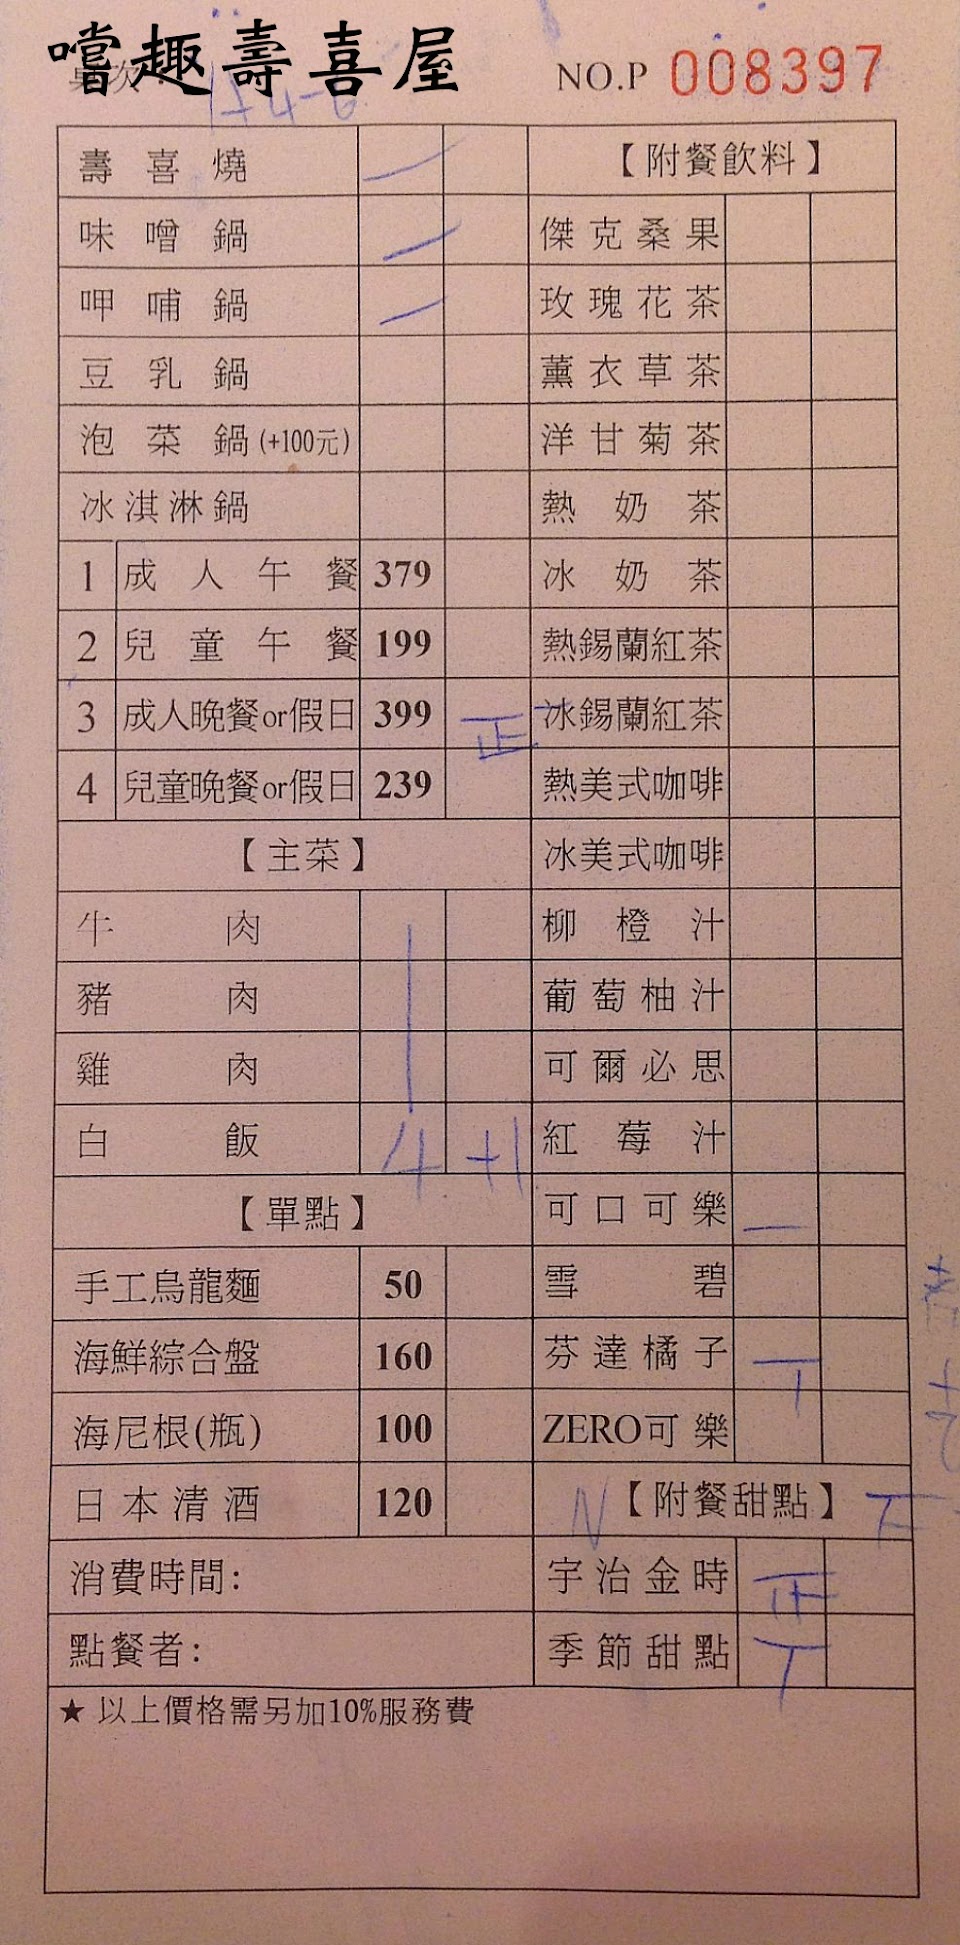 嚐趣壽喜屋
NO.P 008397
壽喜燒 一 【附餐飲料】
味噌鍋 一 傑克桑果
呷哺鍋 一 玫瑰花茶
豆乳鍋 薰衣草茶
泡菜鍋(+100元) 洋甘菊茶
冰淇淋鍋 熱奶茶
1 成人午餐 379 冰奶茶
2 兒童午餐 199 熱錫蘭紅茶
3 成人晚餐or假日 399 正一 冰錫蘭紅茶
4 兒童晚餐or假日 239 熱美式咖啡
【主菜】 冰美式咖啡
牛肉 柳橙汁
豬肉 葡萄柚汁
雞肉 可爾必思
白飯 4 +1 紅莓汁
【單點】 可口可樂 一
手工烏龍麵 50 雪碧
海鮮綜合盤 160 芬達橘子 丅
海尼根(瓶) 100 ZERO可樂
日本清酒 120 N 【附餐甜點】
消費時間: 宇治金時 正
點餐者: 季節甜點 丅
★ 以上價格需另加10%服務費